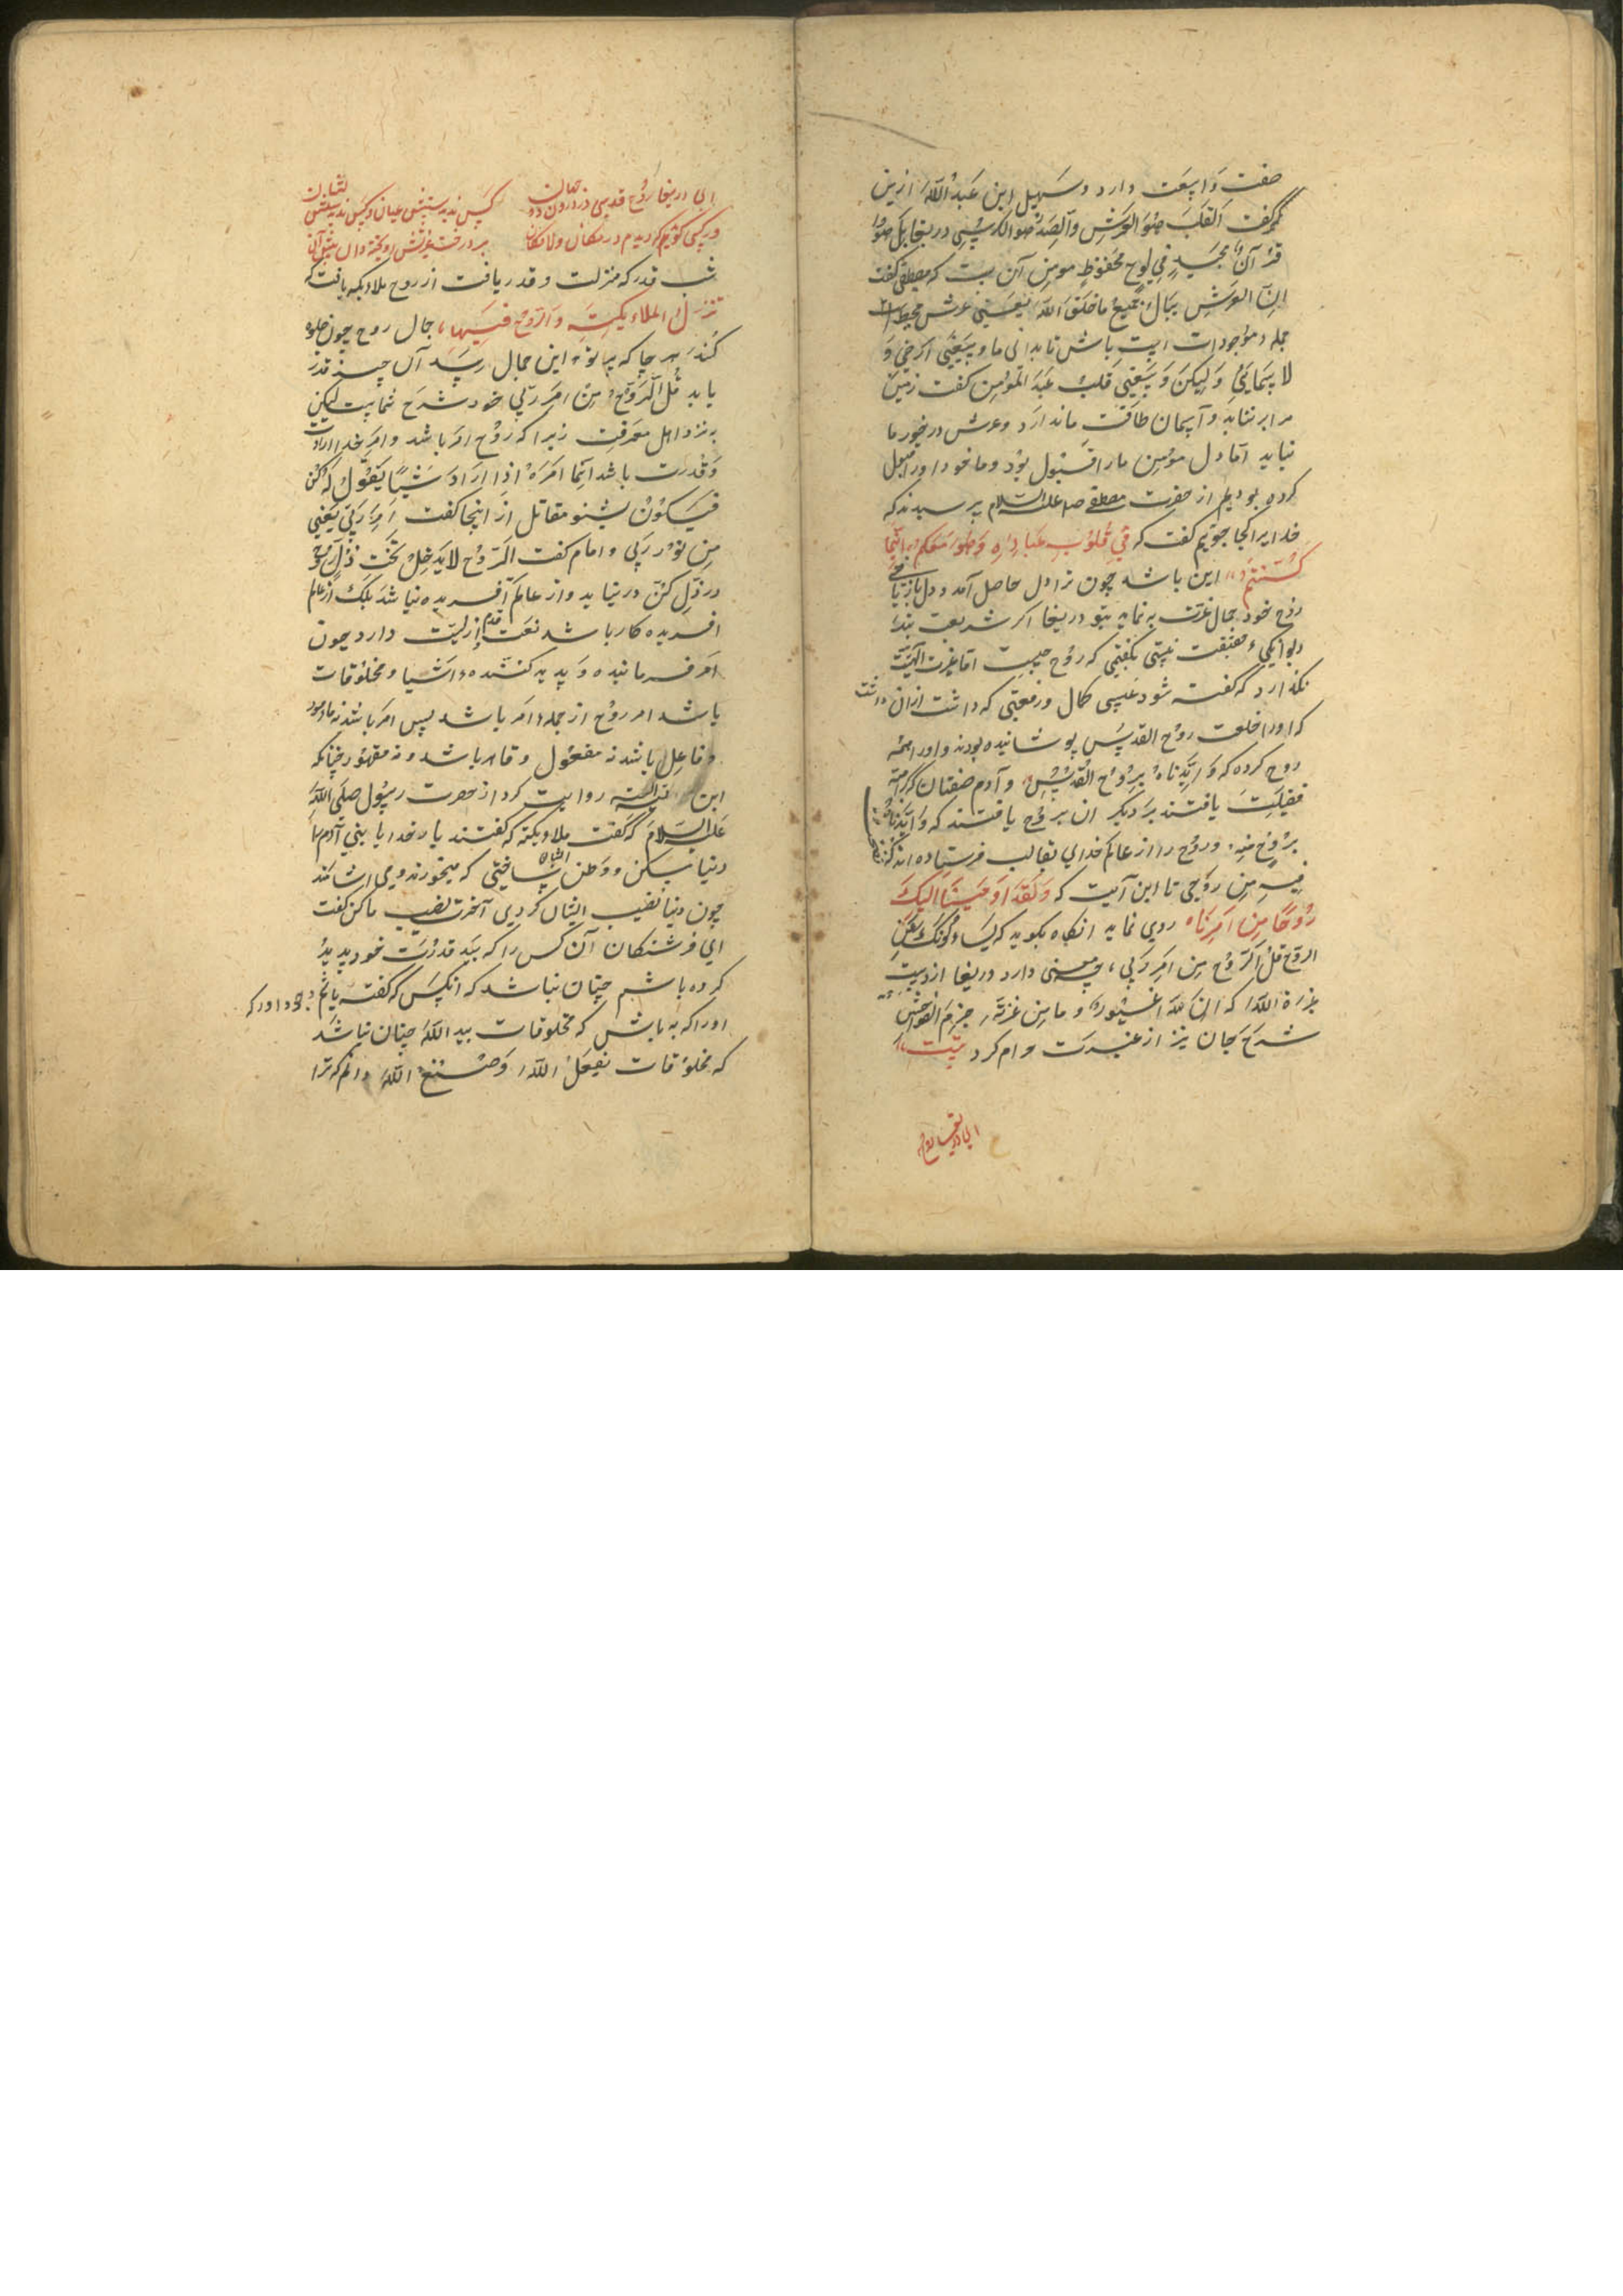 صفت واسعت دارد و سهیل ابن عبد الله ازین
مگر گفت القلب هو العرش والصدر هو الکرسی دریغا بل هو
قرآن مجید فی لوح محفوظ مومن آن ست که مصطفی گفت
ان العرش جمیع ما خلق الله یعنی عرش محیط
جمله موجودات است باش تا بدانی ما وسعنی ارضی و
لا سمایی ولیکن وسعنی قلب عبد المؤمن گفت زمین
مرا بر نتابد و آسمان طاقت ما ندارد و عرش در خور ما
نیاید اما دل مؤمن ما را قبول بود و ما خود او را قبول
کرده بودیم از حضرت مصطفی علیه السلام پرسیدند که
خدایرا کجا جوییم گفت که فی قلوب عباده وهو معکم اینما
کنتم این باشد چون ترا دل حاصل آمد و دل باز یافتی
روح خود جمال عزت به نماید بتو دریغا اگر شریعت بند
دیوانگی حقیقت نیستی بگفتمی که روح چیست اما غیرت الهیت
نگذارد که گفته شود عیسی کمال و رفعتی که داشت ازان داشت
که او را خلعت روح القدس پوشانیده بودند و او را همه
روح کرده که و ایدناه بروح القدس و آدم صفتان که کرامت
فضیلت یافتند بر دیگران بروح یافتند که و ایدناه
بروح منه و روح را از عالم خدای بقالب فرستاده اند که نفخت
فیه من روحی تا این آیت که ولقد اوحینا الیک
روحا من امرنا روی نماید انگاه بگوید که یسئلونک عن
الروح قل الروح من امر ربی چه معنی دارد دریغا از دست
غیرة الله که ان الله غیور و من غیرته حرم الفواحش
شرح جان نیز از غیرت وام کرد بیت
ای دریغا روح
ای دریغا روح قدسی در درون دو جهان کس ندیدستش عیان و کس ندیدستش نشان
ور کسی گویم که دیدم در مکان و لا مکان بر درخت غیرتش آویخته دان بیش آن
شب قدر که منزلت و قدر یافت از روح ملاویکه یافت که
تنزل الملاویکة والروح فیها جمال روح چون جلوه
کند هر جا که پرتو این جمال رسد آن چیز قدر
یابد قل الروح من امر ربی خود شرح تمامست لیکن
به نزد اهل معرفت زیرا که روح امر باشد و امر خدا ارادت
و قدرت باشد انما امره اذا اراد شیئا یقول له کن
فیکون بشنو مقاتل از اینجا گفت امر ربی یعنی
من نور ربی و امام گفت الروح لا یدخل تحت ذل کن روح
در ذل کن در نیاید و از عالم آفریده نباشد بلکه از عالم
آفریده کار باشد نعت قدم ازلیت دارد چون
امر فرمانیده و پدید کننده اشیا و مخلوقات
باشد امر روح از جمله امر باشد پس امر باشد نه مامور
و فاعل باشد نه مفعول و قاهر باشد و نه مقهور چنانکه
ابن روایت کرد از حضرت رسول صلی الله
علیه السلام که گفت ملاویکه که گفتند یا رب خدایا بنی آدم را
دنیا مسکن و وطن ایشان ساختی که میخورند و می اشامند
چون دنیا نصیب ایشان کردی آخرت نصیب ما کن گفت
ای فرشتکان آن کس را که بید قدرت خود پدید
کرده باشم چنان نباشد که انکس که گفته باشم بوجود اورکه
او را که به باش که مخلوقات بید الله چنان نباشد
که مخلوقات بفعل الله وصنع الله دانم که ترا